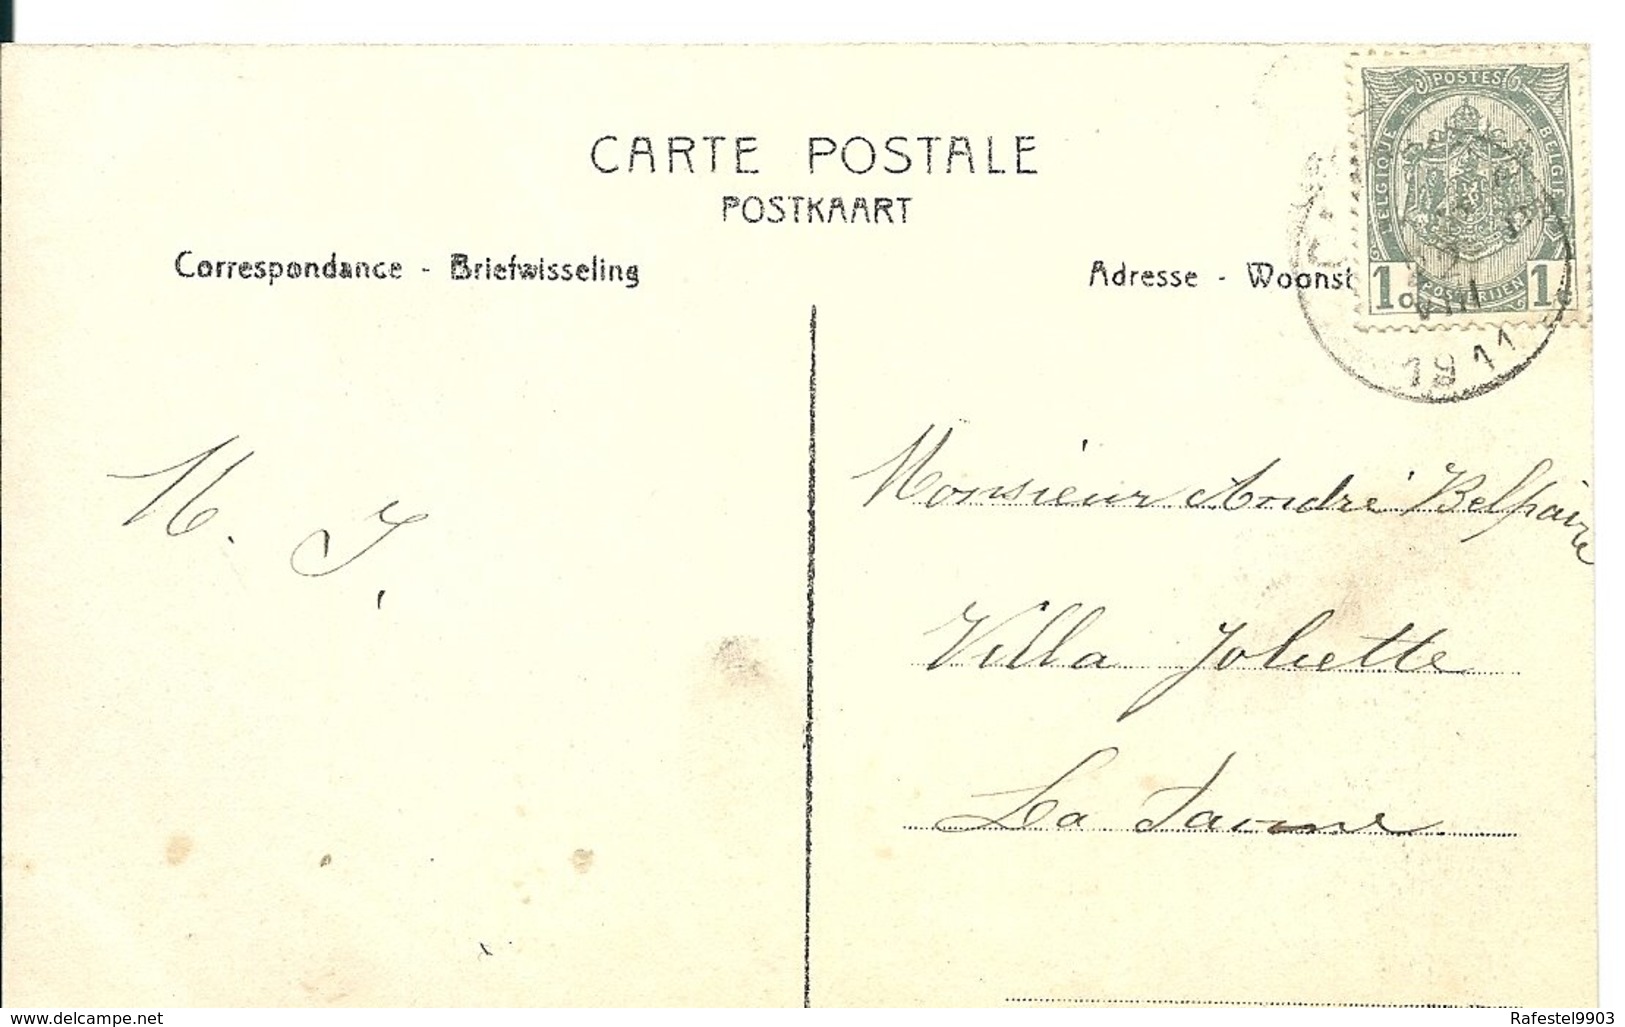 CARTE POSTALE
POSTKAART
Correspondance - Briefwisseling
Adresse - Woonst
POSTES
BELGIQUE
BELGIË
1 1
POSTERIJEN
VIII
1911
M. J.
Monsieur André Belpaire
Villa Joliette
La Panne
www.delcampe.net
Rafestel9903